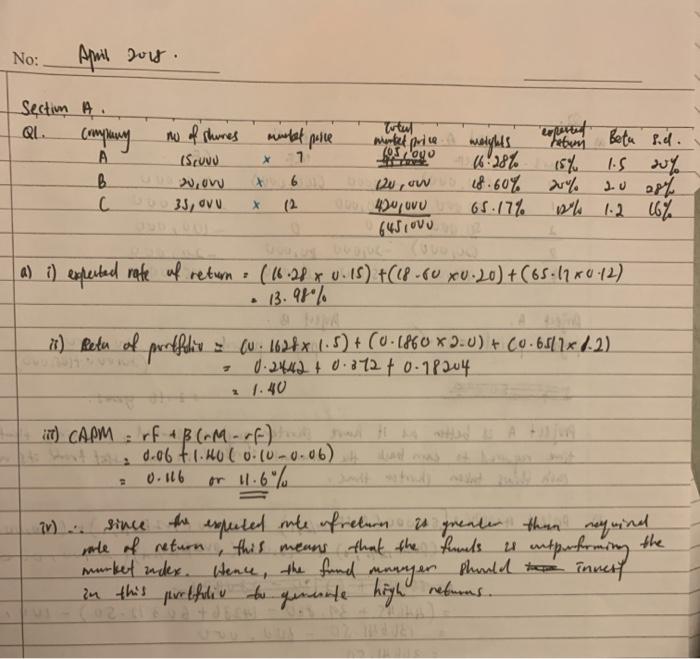 No: April 2018.
Section A.
Q1. Company no of shares market price Total market price weights expected return Beta s.d.
A 15,000 x 7 105,000 16.28% 15% 1.5 20%
B 20,000 x 6 120,000 18.60% 20% 2.0 28%
C 35,000 x 12 420,000 65.17% 12% 1.2 16%
645,000
a) i) expected rate of return = (16.28 x 0.15) + (18.60 x 0.20) + (65.17 x 0.12)
= 13.98%
ii) Beta of portfolio = (0.1628 x 1.5) + (0.1860 x 2.0) + (0.6517 x 1.2)
= 0.2442 + 0.372 + 0.78204
= 1.40
iii) CAPM = rF + β (rM - rF)
= 0.06 + 1.40 ( 0.10 - 0.06)
= 0.116 or 11.6%
iv) ∴ since the expected rate of return is greater than required
rate of return, this means that the funds is outperforming the
market index. Hence, the fund manager should invest
in this portfolio to generate high returns.